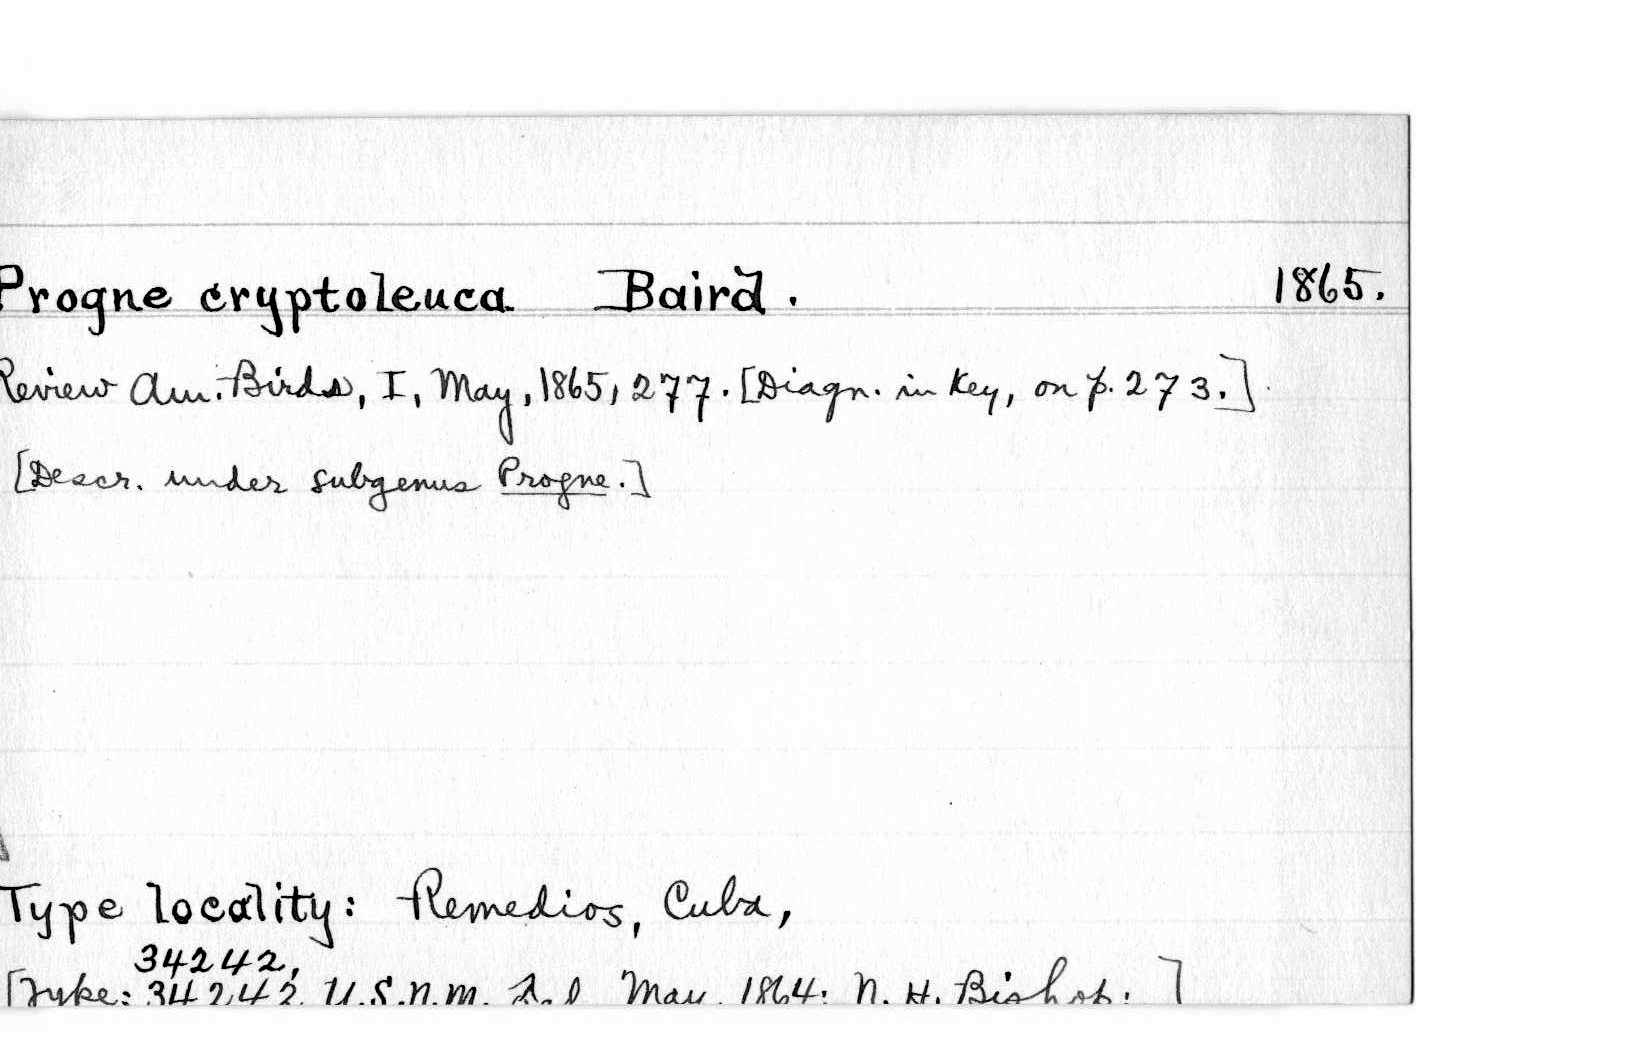 Progne cryptoleuca Baird. 1865.
Review Am. Birds, I, May, 1865, 277. [Diagn. in Key, on p. 273.]
[Descr. under subgenus Progne.]
Type locality: Remedios, Cuba,
34242,
[Type: 34242 U.S.N.M. May, 1864; N. H. Bishop. ]